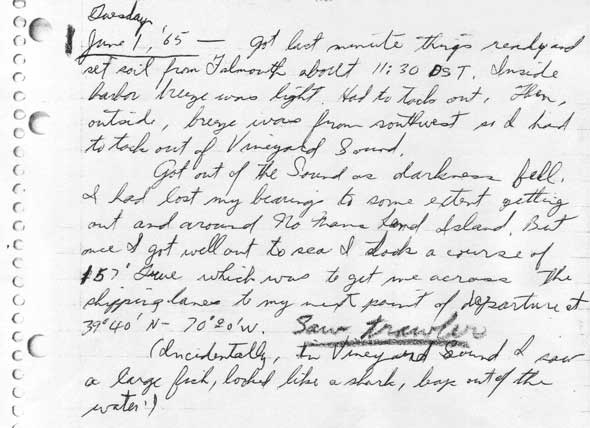 Tuesday
June 1, '65 — Got last minute things ready and
set sail from Falmouth about 11:30 DST. Inside
harbor breeze was light. Had to tack out. Then,
outside, breeze was from southwest so I had
to tack out of Vineyard Sound.
Got out of the Sound as darkness fell.
I had lost my bearings to some extent getting
out and around No Mans Land Island. But
once I got well out to sea I took a course of
157° True which was to get me across the
shipping lanes to my next point of departure at
39°40' N - 70°20' W. Saw trawler
(Incidentally, in Vineyard Sound I saw
a large fish, looked like a shark, leap out of the
water!)